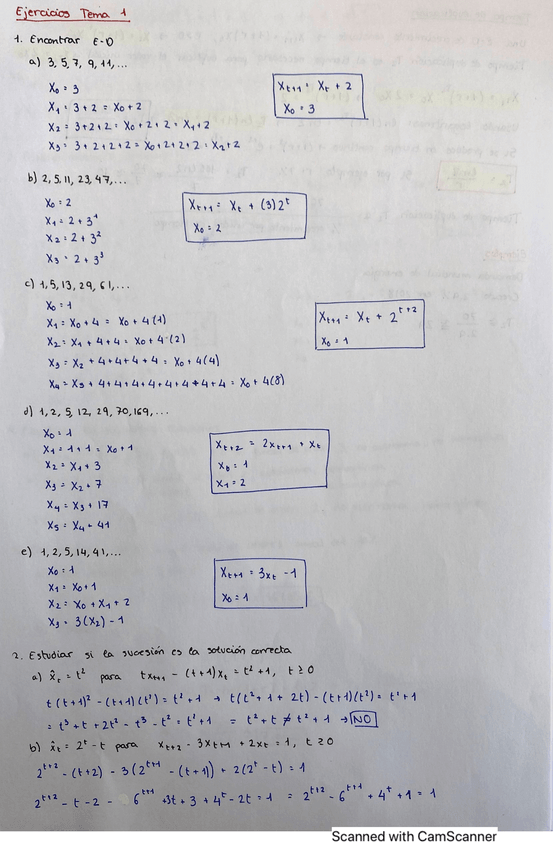 Ejercicios Tema 1
1. Encontrar E-D
a) 3, 5, 7, 9, 11, ...
X₀ = 3
X₁ = 3 + 2 = X₀ + 2
X₂ = 3 + 2 + 2 = X₀ + 2 + 2 = X₁ + 2
X₃ = 3 + 2 + 2 + 2 = X₀ + 2 + 2 + 2 = X₂ + 2
Xₜ₊₁ = Xₜ + 2
X₀ = 3
b) 2, 5, 11, 23, 47, ...
X₀ = 2
X₁ = 2 + 3¹
X₂ = 2 + 3²
X₃ = 2 + 3³
Xₜ₊₁ = Xₜ + (3)2ᵗ
X₀ = 2
c) 1, 5, 13, 29, 61, ...
X₀ = 1
X₁ = X₀ + 4 = X₀ + 4(1)
X₂ = X₁ + 4 + 4 = X₀ + 4·(2)
X₃ = X₂ + 4 + 4 + 4 + 4 = X₀ + 4(4)
X₄ = X₃ + 4 + 4 + 4 + 4 + 4 + 4 + 4 + 4 = X₀ + 4(8)
Xₜ₊₁ = Xₜ + 2ᵗ⁺²
X₀ = 1
d) 1, 2, 5, 12, 29, 70, 169, ...
X₀ = 1
X₁ = 1 + 1 = X₀ + 1
X₂ = X₁ + 3
X₃ = X₂ + 7
X₄ = X₃ + 17
X₅ = X₄ + 41
Xₜ₊₂ = 2xₜ₊₁ + xₜ
X₀ = 1
X₁ = 2
e) 1, 2, 5, 14, 41, ...
X₀ = 1
X₁ = X₀ + 1
X₂ = X₀ + X₁ + 2
X₃ = 3(X₂) - 1
Xₜ₊₁ = 3xₜ - 1
X₀ = 1
2. Estudiar si la sucesión es la solución correcta
a) x̂ₜ = t² para txₜ₊₁ - (t+1)xₜ = t² + 1, t ≥ 0
t(t+1)² - (t+1)(t²) = t² + 1 → t(t² + 1 + 2t) - (t+1)(t²) = t² + 1
= t³ + t + 2t² - t³ - t² = t² + 1 = t² + t ≠ t² + 1 → NO
b) x̂ₜ = 2ᵗ - t para xₜ₊₂ - 3xₜ₊₁ + 2xₜ = 1, t ≥ 0
2ᵗ⁺² - (t+2) - 3(2ᵗ⁺¹ - (t+1)) + 2(2ᵗ - t) = 1
2ᵗ⁺² - t - 2 - 6ᵗ⁺¹ + 3t + 3 + 4ᵗ - 2t = 1 = 2ᵗ⁺² - 6ᵗ⁺¹ + 4ᵗ + 1 = 1
Scanned with CamScanner